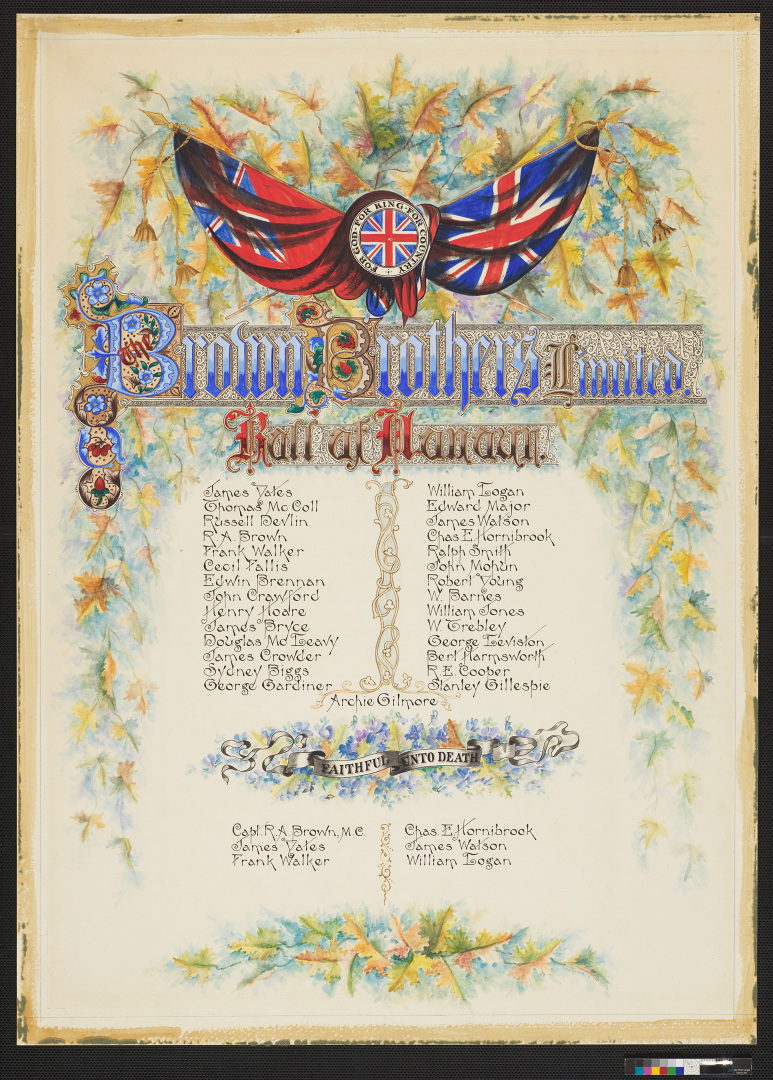 FOR GOD · FOR KING · FOR COUNTRY
The Brown Brothers Limited.
Roll of Honour.
James Yates
Thomas McColl
Russell Devlin
R.A. Brown
Frank Walker
Cecil Fallis
Edwin Brennan
John Crawford
Henry Hoare
James Bryce
Douglas McLeavy
James Crowder
Sydney Biggs
George Gardiner
William Logan
Edward Major
James Watson
Chas E Hornibrook
Ralph Smith
John Mohun
Robert Young
W. Barnes
William Jones
W. Trebley
George Leviston
Bert Harmsworth
R.E. Cooper
Stanley Gillespie
Archie Gilmore
FAITHFUL UNTO DEATH
Capt. R.A. Brown, M.C.
James Yates
Frank Walker
Chas. E. Hornibrook
James Watson
William Logan